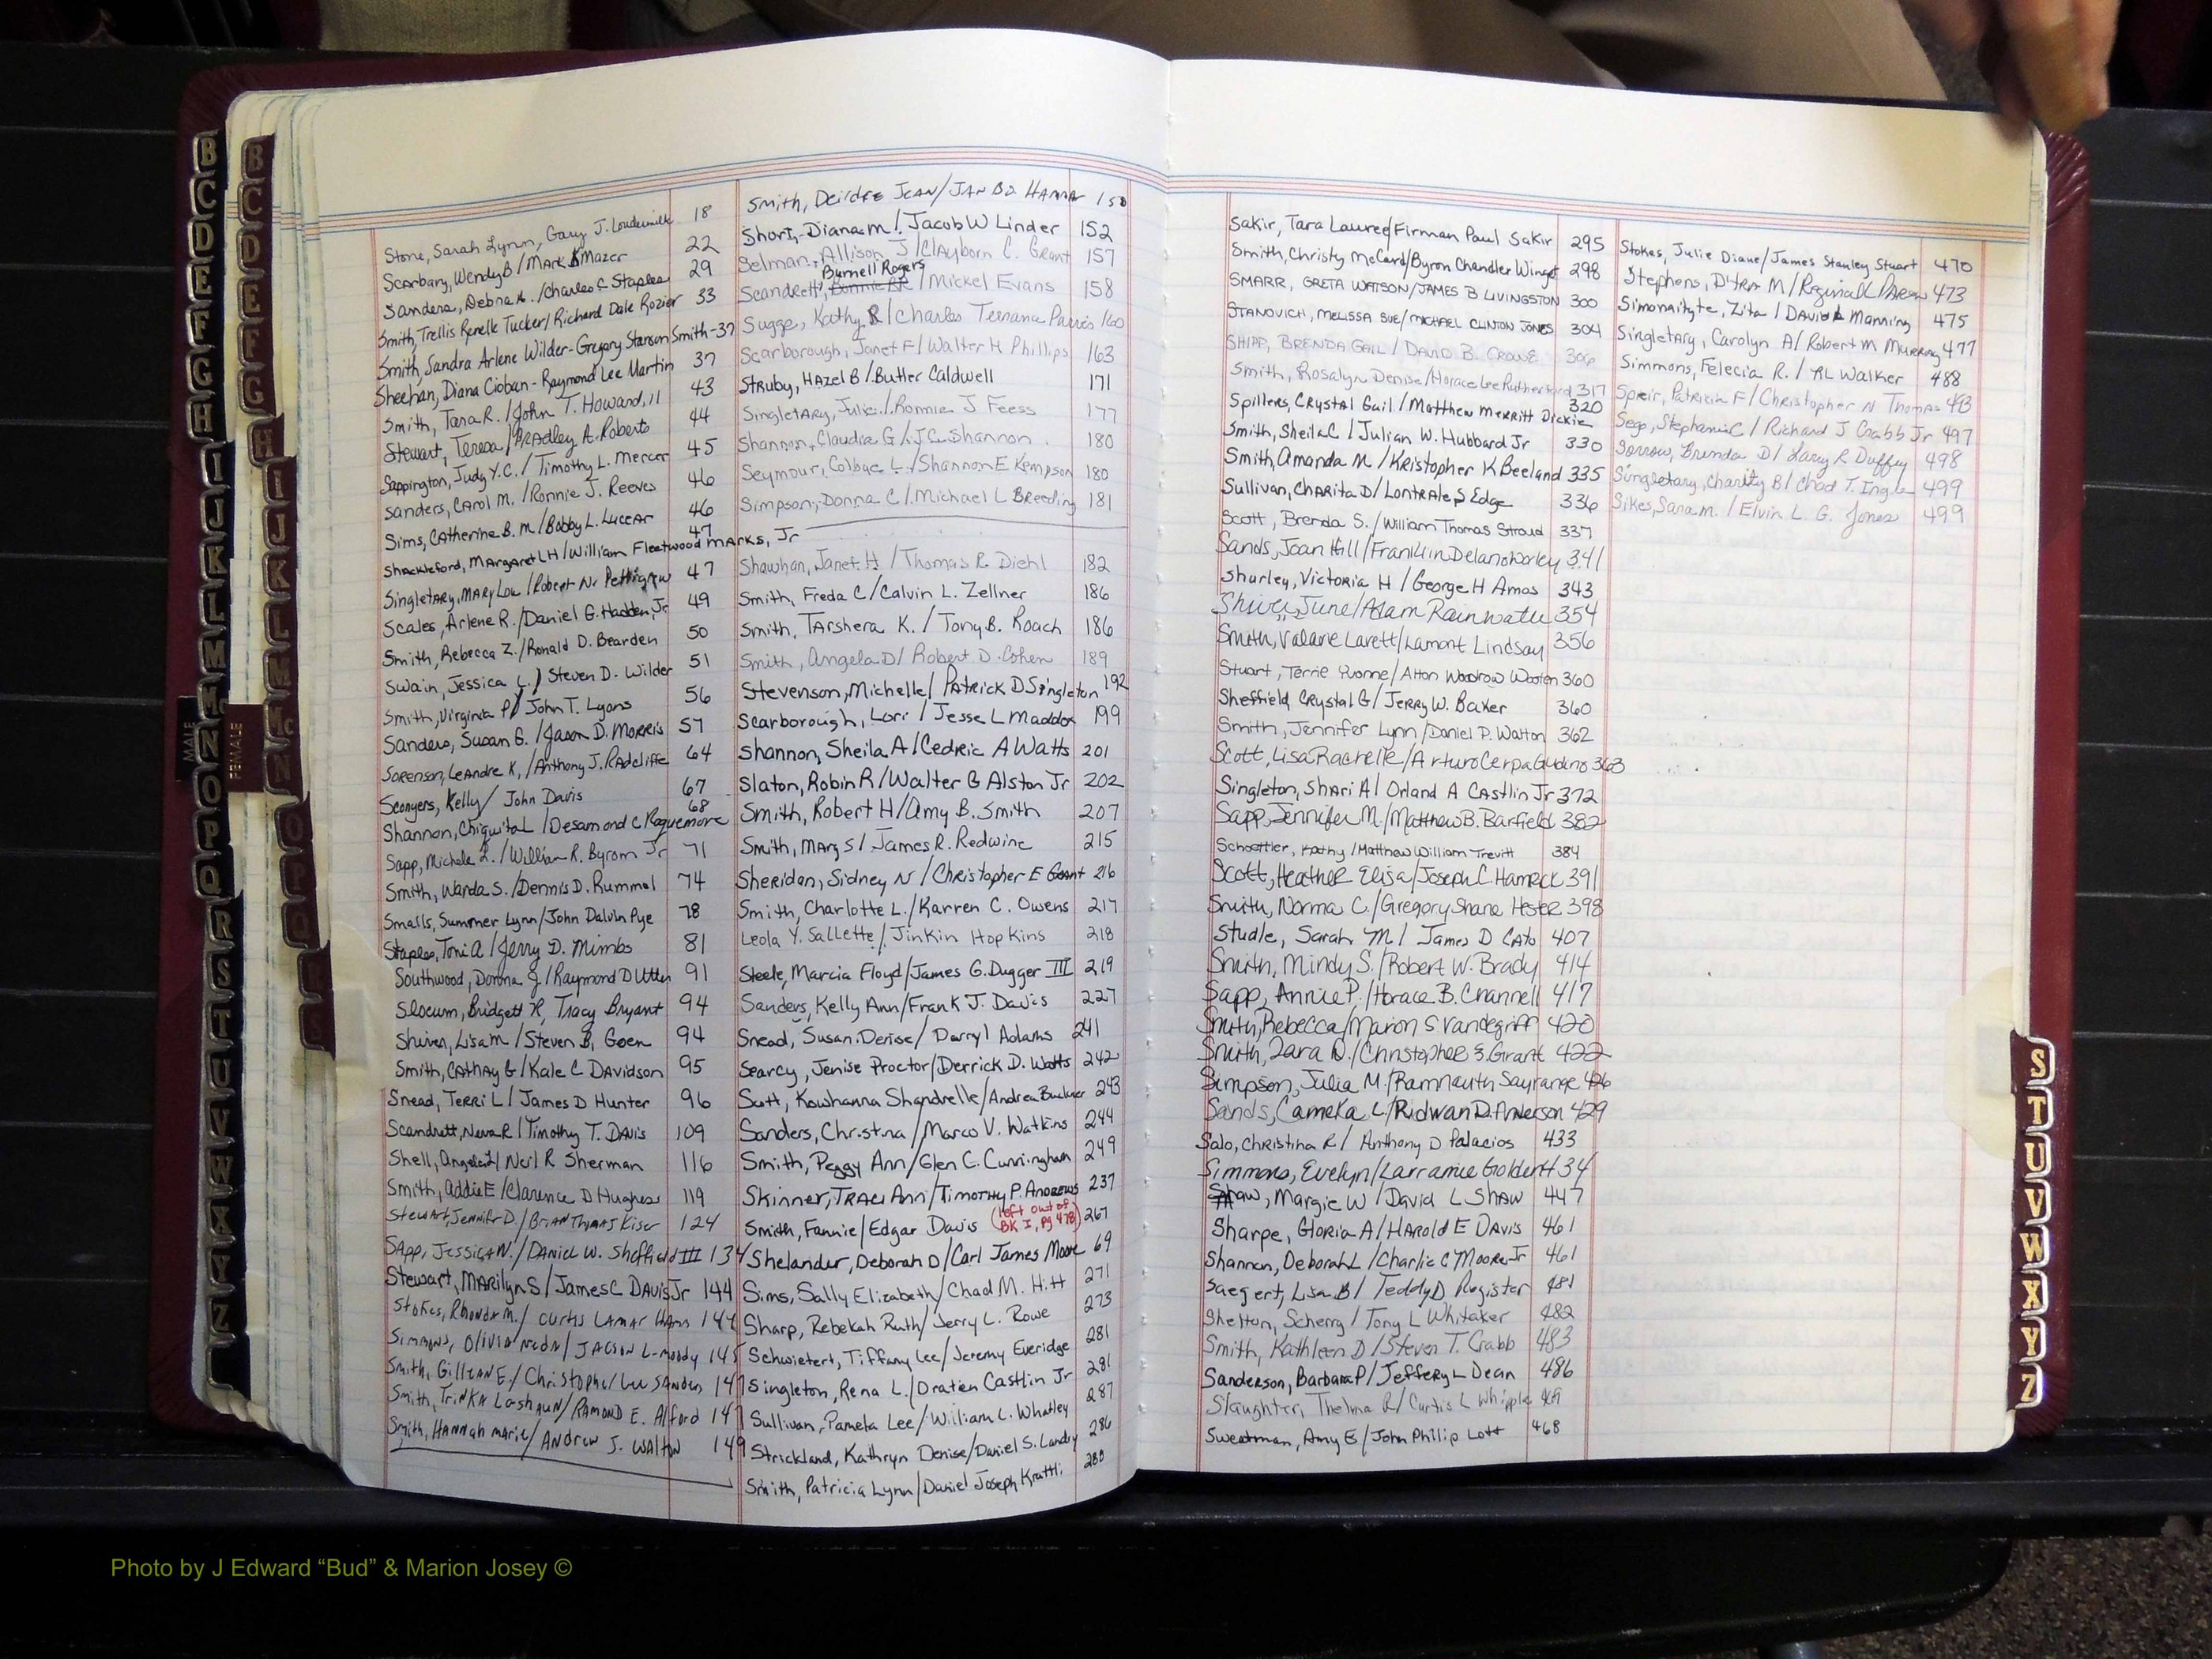 B
C
D
E
F
G
H
I
J
K
L
M
Mc
N
O
P
Q
R
S
T
U
V
W
X
Y
Z
MALE
B
C
D
E
F
G
H
I
J
K
L
M
Mc
N
O
P
Q
R
S
FEMALE
Stone, Sarah Lynn, Gary J. Loudermilk 18
Scarbary, Wendy B / Mark Mazer 22
Sanders, Debra K. / Charles C Staples 29
Smith, Trellis Renelle Tucker / Richard Dale Rozier 33
Smith, Sandra Arlene Wilder - Gregory Stanson Smith - 37
Sheehan, Diana Cioban - Raymond Lee Martin 37
Smith, Tara R. / John T. Howard, II 43
Stewart, Teresa / Bradley A. Roberts 44
Sappington, Judy Y.C. / Timothy L. Mercer 45
Sanders, Carol M. / Ronnie J. Reeves 46
Sims, Catherine B. M / Bobby L. Lucear 46
Shackleford, Margaret LH / William Fleetwood Marks, Jr 47
Singletary, Mary Lou / Robert N. Pettigrew 47
Scales, Arlene R. / Daniel G. Hadden, Jr 49
Smith, Rebecca Z. / Ronald D. Bearden 50
Swain, Jessica L. / Steven D. Wilder 51
Smith, Virginia P / John T. Lyons 56
Sanders, Susan G. / Jason D. Morris 57
Sorenson, LeAndre K. / Anthony J. Radcliffe 64
Scongers, Kelly / John Davis 67
Shannon, Chiquita L / Desamond C Roquemore 68
Sapp, Michele L. / William R. Byrom Jr 71
Smith, Wanda S. / Dennis D. Rummel 74
Smalls, Summer Lynn / John Dalvin Pye 78
Staples, Toni A / Jerry D. Mimbs 81
Southwood, Donna J / Raymond D Utten 91
Slocum, Bridgett R, Tracy Bryant 94
Shiver, Lisa M / Steven B. Goen 94
Smith, Cathay G / Kale C Davidson 95
Snead, Terri L / James D Hunter 96
Scandrett, Neva R / Timothy T. Davis 109
Shell, Angela / Neil R Sherman 116
Smith, Addie E / Clarence D Hughes 119
Stewart, Jennifer D. / Brian Thomas Kiser 124
Sapp, Jessica N. / Daniel W. Sheffield III 134
Stewart, Marilyn S / James C Davis Jr 144
Stokes, Rhonda M. / Curtis Lamar 144
Simmons, Olivia / Jackson L. Moody 145
Smith, Gillian E. / Christopher Lee Sanders 147
Smith, Trinka Lashaun / Ramond E. Alford 147
Smith, Hannah Marie / Andrew J. Walton 149
Smith, Deirdre Jean / Jan Bo Hamm 150
Short, Diana M / Jacob W Linder 152
Selman, Allison J / Clayborn C. Grant 157
Burnell Rogers
Scandrett, Bonnie / Mickel Evans 158
Suggs, Kathy R / Charles Terrance Parris 160
Scarborough, Janet F / Walter H Phillips 163
Struby, Hazel B / Butler Caldwell 171
Singletary, Julie / Ronnie J Feess 177
Shannon, Claudia G / J.C. Shannon 180
Seymour, Colbye L. / Shannon E Kempson 180
Simpson, Donna C / Michael L Breeding 181
Shawhan, Janet H / Thomas R. Diehl 182
Smith, Freda C / Calvin L. Zellner 186
Smith, Tarshera K. / Tony B. Roach 186
Smith, Angela D / Robert D. Cohen 189
Stevenson, Michelle / Patrick D Singleton 192
Scarborough, Lori / Jesse L Maddox 199
Shannon, Sheila A / Cedric A Watts 201
Slaton, Robin R / Walter G Alston Jr 202
Smith, Robert H / Amy B. Smith 207
Smith, Mary S / James R. Redwine 215
Sheridan, Sidney N / Christopher E Grant 216
Smith, Charlotte L. / Karren C. Owens 217
Leola Y. Sallette / Jinkin Hopkins 218
Steele, Marcia Floyd / James G. Dugger III 219
Sanders, Kelly Ann / Frank J. Davis 227
Snead, Susan Denise / Darryl Adams 241
Searcy, Jenise Proctor / Derrick D. Watts 242
Scott, Kowhanna Shandrelle / Andrea Buckner 243
Sanders, Christina / Marco V. Watkins 244
Smith, Peggy Ann / Glen C. Cunningham 249
Skinner, Traci Ann / Timothy P. Andrews 237
Smith, Fannie / Edgar Davis (left out of BK I, Pg 478) 267
Shelander, Deborah D / Carl James Moore 69
Sims, Sally Elizabeth / Chad M. Hitt 271
Sharp, Rebekah Ruth / Jerry L. Rowe 273
Schwietert, Tiffany Lee / Jeremy Everidge 281
Singleton, Rena L. / Oratien Castlin Jr 281
Sullivan, Pamela Lee / William L. Whatley 287
Strickland, Kathryn Denise / Daniel S. Landry 286
Smith, Patricia Lynn / Daniel Joseph Krattli 280
Sakir, Tara Lauree / Firman Paul Sakir 295
Smith, Christy McCard / Byron Chandler Winget 298
Smarr, Greta Watson / James B Livingston 300
Stanovich, Melissa Sue / Michael Clinton Jones 304
Shipp, Brenda Gail / David B. Crowe 306
Smith, Rosalyn Denise / Horace Lee Rutherford 317
Spillers, Crystal Gail / Matthew Merritt Dickie 320
Smith, Sheila C / Julian W. Hubbard Jr 330
Smith, Amanda M / Kristopher K Beeland 335
Sullivan, Charita D / Lontrale S Edge 336
Scott, Brenda S. / William Thomas Stroud 337
Sands, Joan Hill / Franklin Delano Worley 341
Shurley, Victoria H / George H Amos 343
Shiver, June / Adam Rainwater 354
Smith, Valarie Lavett / Lamont Lindsay 356
Stuart, Terrie Yvonne / Alton Woodrow Wooten 360
Sheffield Crystal G / Jerry W. Baker 360
Smith, Jennifer Lynn / Daniel P. Walton 362
Scott, Lisa Rachelle / Arturo Cerpa Gudino 363
Singleton, Shari A / Orland A Castlin Jr 372
Sapp, Jennifer M. / Matthew B. Barfield 382
Schoettler, Kathy / Matthew William Trevitt 384
Scott, Heather Elisa / Joseph C. Hamrick 391
Smith, Norma C. / Gregory Shane Hester 398
Studle, Sarah M / James D Cato 407
Smith, Mindy S. / Robert W. Brady 414
Sapp, Annie P. / Horace B. Channell 417
Smith, Rebecca / Marion S Vandegriff 420
Smith, Zara D. / Christopher S. Grant 422
Simpson, Julia M. / Ramnauth Sayrange 426
Sands, Cameka L / Ridwan D. Anderson 429
Salo, Christina R / Anthony D Palacios 433
Simmons, Evelyn / Larramie Golden 434
Shaw, Margie W / David L Shaw 447
Sharpe, Gloria A / Harold E Davis 461
Shannon, Deborah L / Charlie C Moore Jr 461
Saegert, Lisa B / Teddy D Register 481
Shelton, Scherry / Tony L Whitaker 482
Smith, Kathleen D / Steven T. Crabb 483
Sanderson, Barbara P / Jeffery L Dean 486
Slaughter, Thelma R / Curtis L Whipple 469
Sweatman, Amy E / John Philip Lott 468
Stokes, Julie Diane / James Stanley Stuart 470
Stephens, D'tra M / Reginald L Parson 473
Simonaityte, Zita / David A Manning 475
Singletary, Carolyn A / Robert M Murray 477
Simmons, Felecia R. / RL Walker 488
Speir, Patricia F / Christopher N Thomas 493
Sego, Stephanie C / Richard J Crabb Jr 497
Sorrow, Brenda D / Larry R Duffey 498
Singletary, Charity B / Chad T. Ingle 499
Sikes, Sara M. / Elvin L. G. Jones 499
S
T
U
V
W
X
Y
Z
Photo by J Edward “Bud” & Marion Josey ©